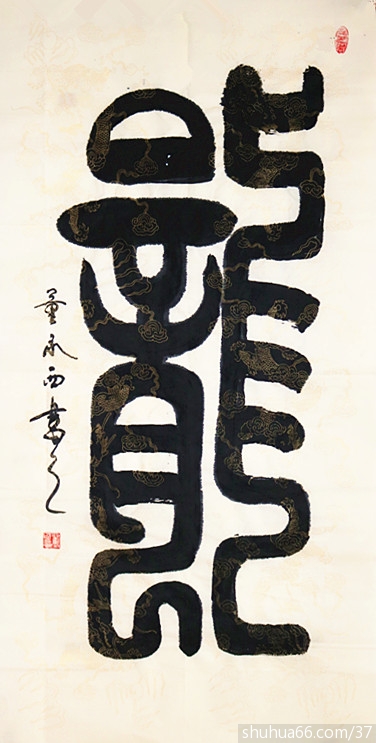 龍
董永西書之
shuhua66.com/37